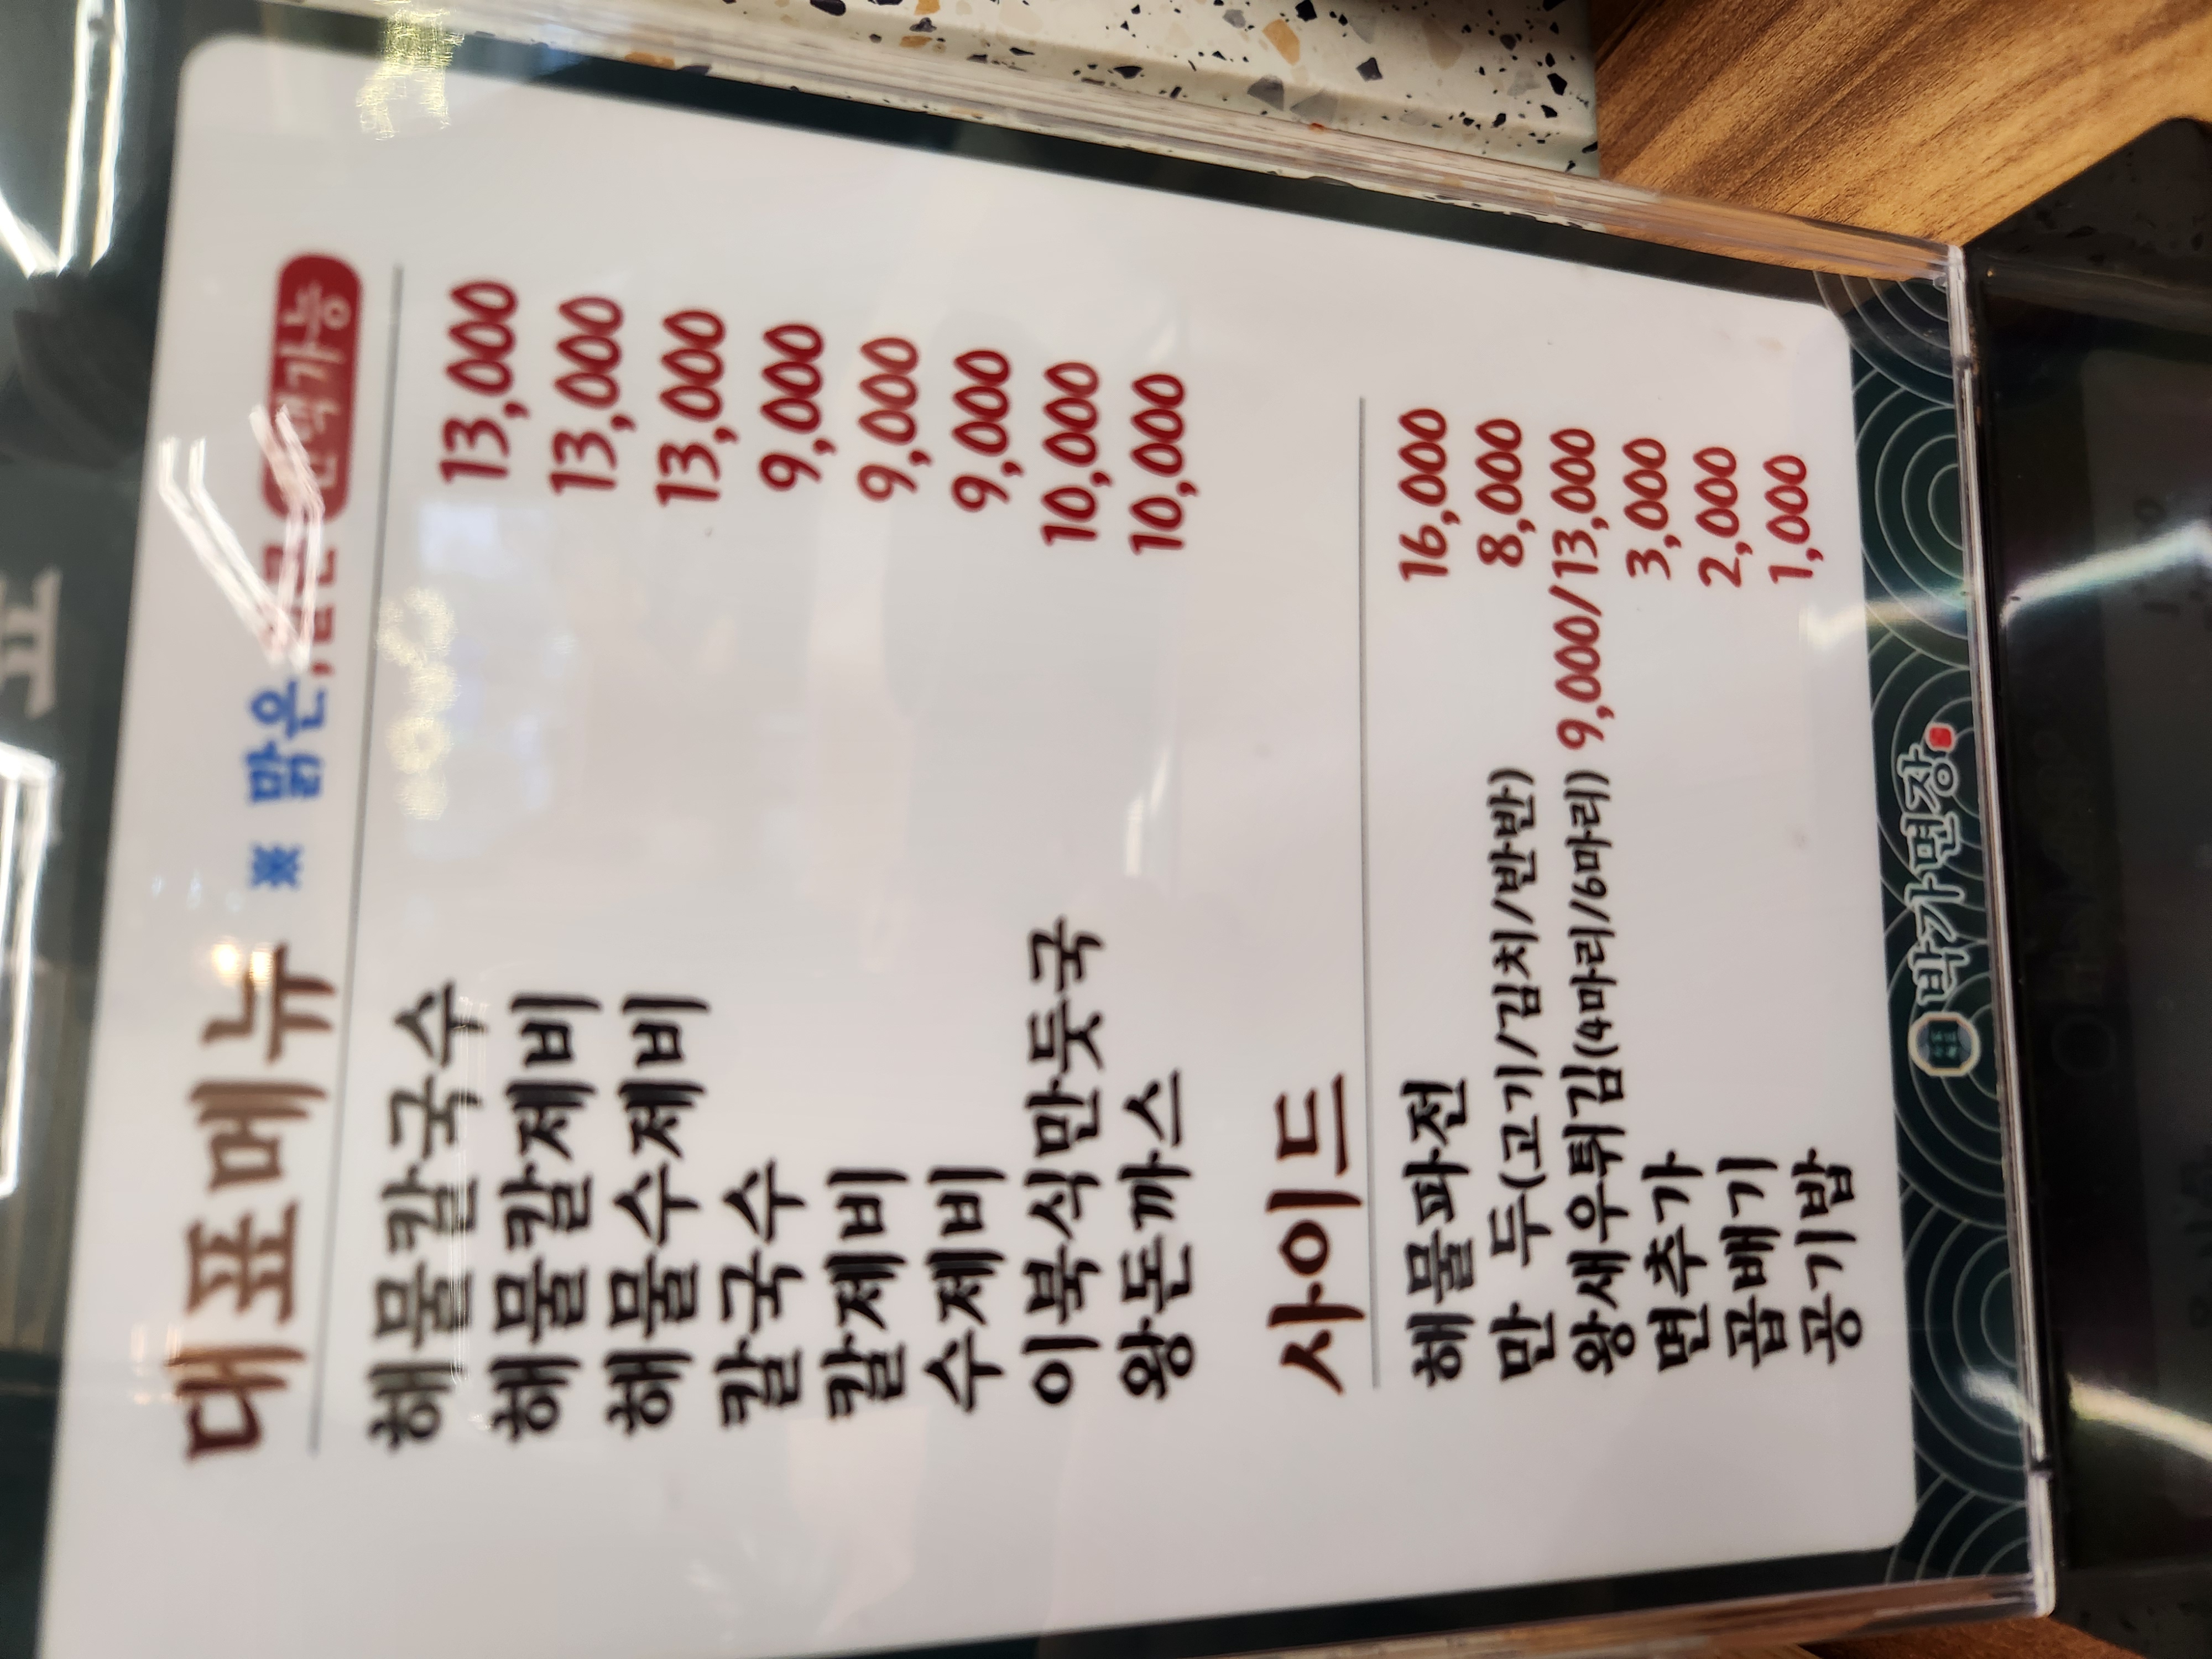 대표메뉴 ※ 맑은, 얼큰 선택가능
해물칼국수 13,000
해물칼제비 13,000
해물수제비 13,000
칼국수 9,000
칼제비 9,000
수제비 9,000
이북식만둣국 10,000
왕돈까스 10,000
사이드
해물파전 16,000
만 두(고기/김치/반반) 8,000
왕새우튀김(4마리/6마리) 9,000/13,000
면추가 3,000
곱배기 2,000
공기밥 1,000
박가면장